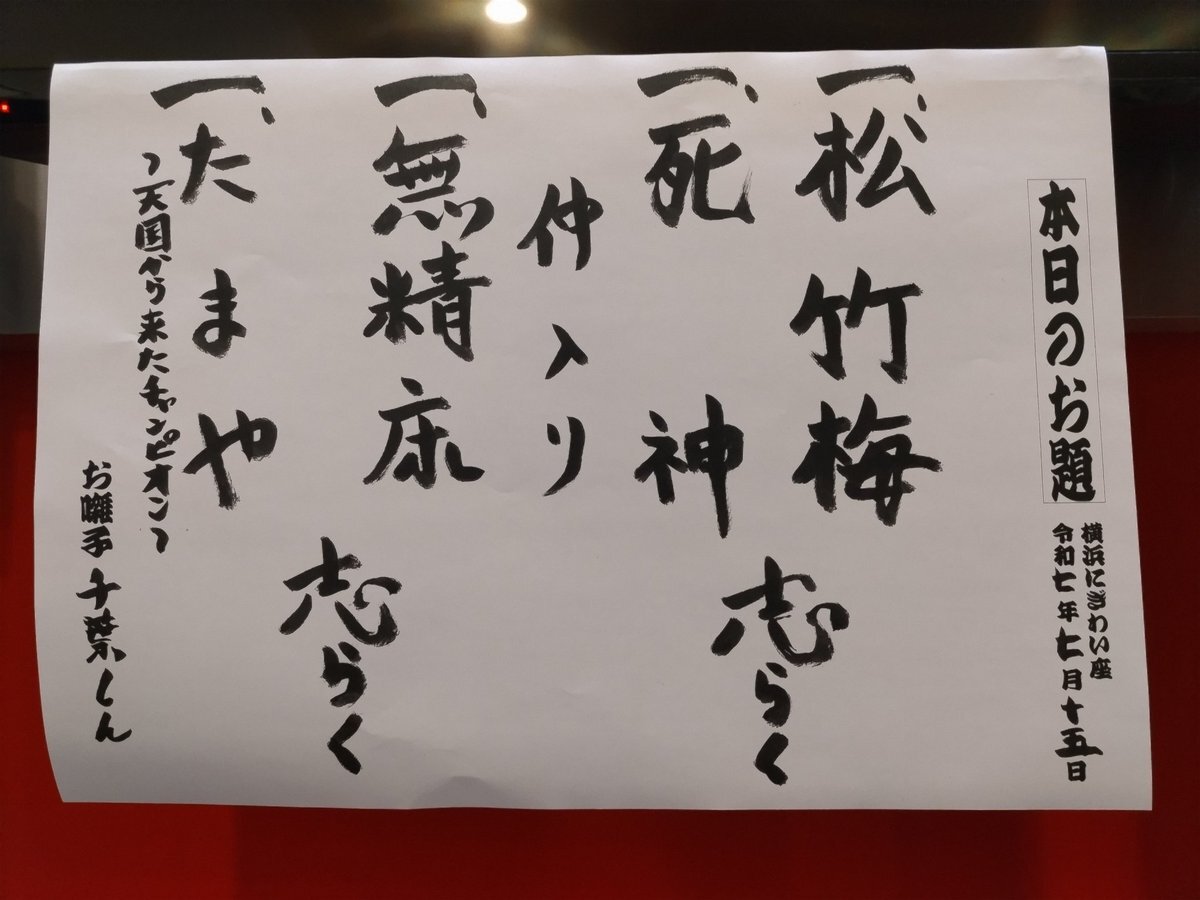 本日のお題
横浜にぎわい座
令和七年七月十五日
一、松竹梅
一、死神
志らく
仲入り
一、無精床
志らく
一、たまや
〜天国から来たチャンピオン〜
お囃子 千葉しん